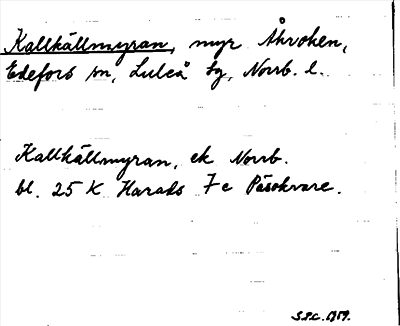 Kallkällmyran, myr Åkroken,
Edefors sn, Luleå sg, Norrb. l.
Kallkällmyran, ek Norrb.
bl. 25 K Harads 7 e Påsokvare.
S.P.C. 1959.